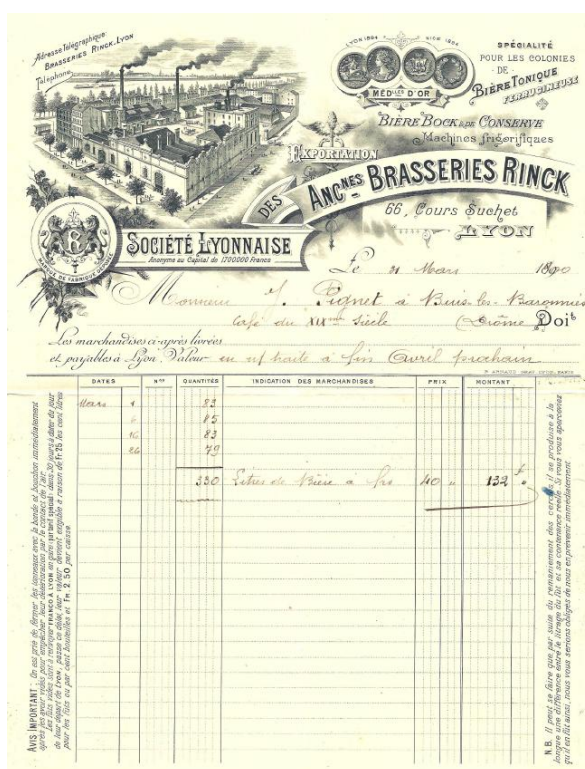 Adresse Télégraphique
BRASSERIES RINCK_LYON
Téléphone
LYON 1894
NICE 1884
MÉD^LLES D'OR
SPÉCIALITÉ
POUR LES COLONIES
- DE -
BIÈRE TONIQUE
FERRUGINEUSE
BIÈRE BOCK & DE CONSERVE
Machines frigorifiques
EXPORTATION
SOCIÉTÉ LYONNAISE
Anonyme au Capital de 1.700.000 Francs
DES
ANC^NES BRASSERIES RINCK
66, Cours Suchet
LYON
MARQUE DE FABRIQUE DÉPOSÉE
Le 31 Mars 1890
Monsieur J. Pignet à Buis-les-Baronnies
Café du XIX^me Siècle (Drôme) Doit
Les marchandises ci-après livrées
et payables à Lyon, Valeur en n/ traite à fin Avril prochain
DATES N^os QUANTITÉS INDICATION DES MARCHANDISES PRIX MONTANT
Mars 1 83
6 85
16 83
26 79
330 Litres de Bière à frs 40 " 132 "
AVIS IMPORTANT : On est prié de fermer les tonneaux avec la bonde et bouchon immédiatement
après les avoir vidés pour empêcher leur détérioration par le contact de l'air.
Les fûts vides sont à renvoyer FRANCO À LYON en gare: dans 30 jours à dater du jour
de leur départ de LYON, passé ce délai, leur valeur devient exigible à raison de Fr 25 les cent litres
pour les fûts ou par cent bouteilles et Fr. 2.50 par caisse.
N.B. Il peut se faire que par suite du remaniement des cercles il se produise à la
longue une différence entre le litrage du fût et sa contenance réelle. Si vous vous aperceviez
qu'il en fût ainsi, nous vous serions obligés de nous en prévenir immédiatement